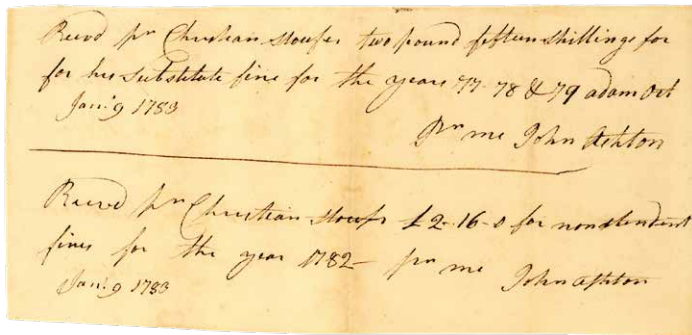 Recvd pr Christian Stoufer two pound fifteen shillings for
for his substitute fine for the years 77 78 & 79 adam Ort
Jany 9 1783
Pr me John Ashton
Recvd pr Christian Stoufer £2-16-0 for nonattendent
fines for the year 1782 pr me John Ashton
Jany 9 1783